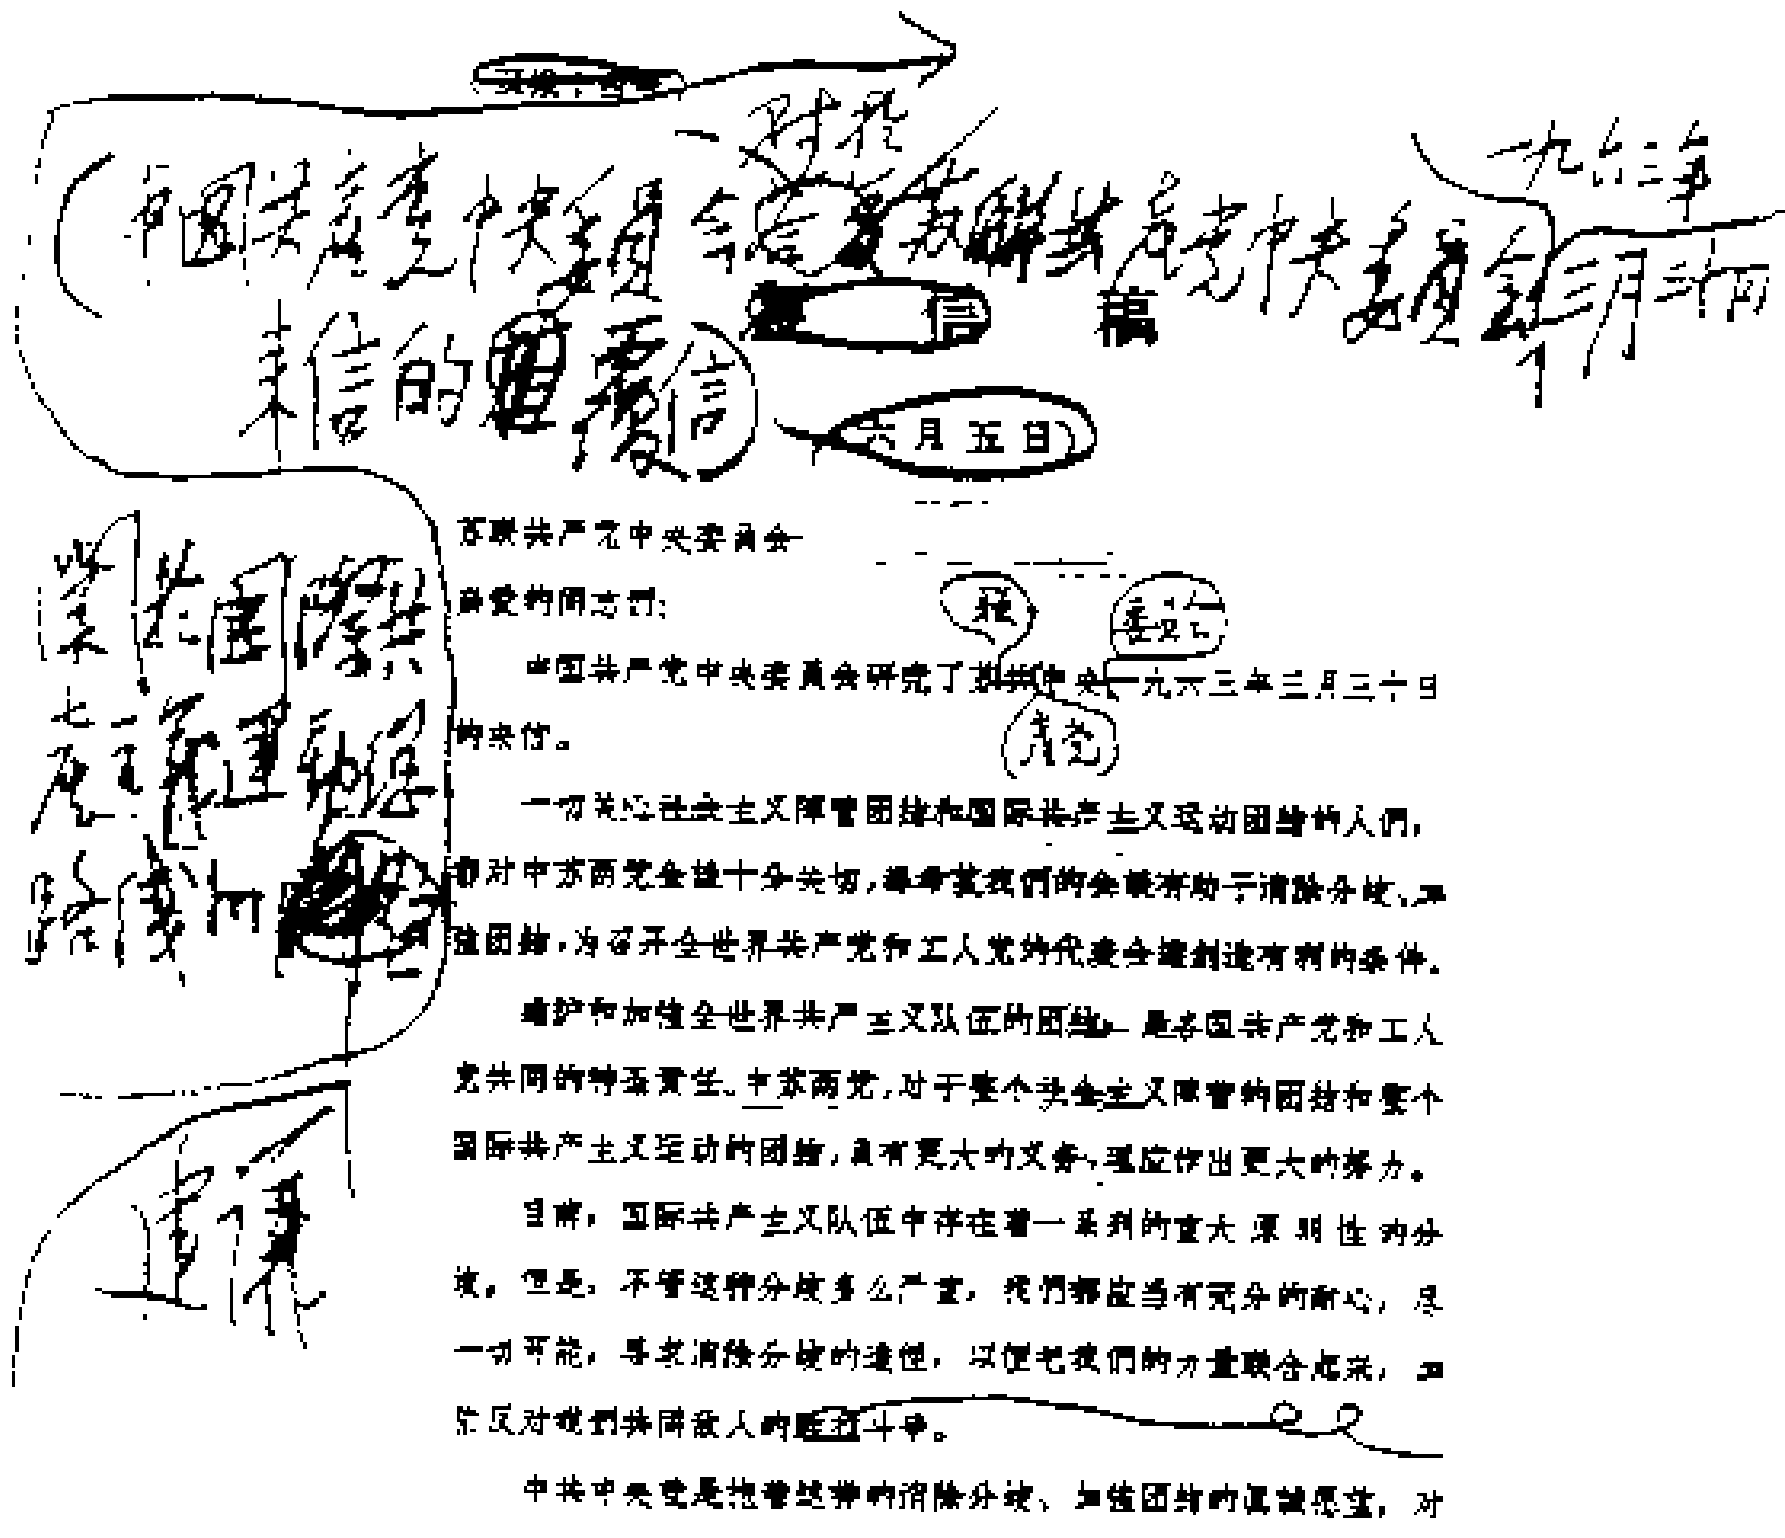 对于
一九六三年
中国共产党中央委员会 苏联共产党中央委员会 三月三十日
信 稿
来信的覆信
六月五日
关于国际共
产主义运动总
路线的
建议
苏联共产党中央委员会
亲爱的同志们:
产党
委员会
中国共产党中央委员会研究了苏共中央一九六三年三月三十日
的来信。
一切关心社会主义阵营团结和国际共产主义运动团结的人們,
都对中苏两党会談十分关切,都希望我們的会談有助于消除分歧、加
强团结,为召开全世界共产党和工人党的代表会議創造有利的条件。
維护和加强全世界共产主义队伍的团结,是各国共产党和工人
党共同的神圣責任。中苏两党,对于整个社会主义阵营的团结和整个
国际共产主义运动的团结,負有更大的义务,理应作出更大的努力。
目前,国际共产主义队伍中存在着一系列的重大原則性的分
歧。但是,不管这种分歧多么严重,我們都应当有充分的耐心,尽
一切可能,寻求消除分歧的途径,以便把我們的力量联合起来,加
强反对我們共同敌人的斗争。
中共中央就是抱着这种的消除分歧、加强团结的真誠愿望,对